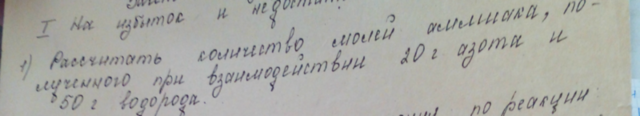 I На избыток и недостат
1) Рассчитать количество молей аммиака, по-
лученного при взаимодействии 20 г азота и
50 г водорода.
по реакции